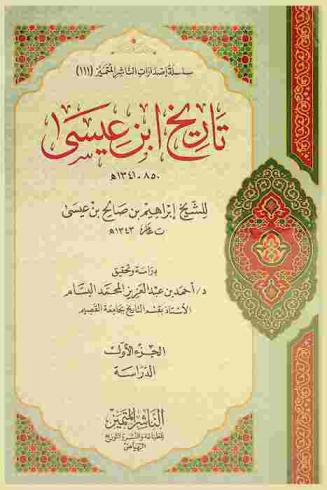 سلسلة إصدارات الناشر المتميز (١١١)
تاريخ ابن عيسى
٨٥٠ - ١٣٤١هـ
للشيخ إبراهيم بن صالح بن عيسى
ت ١٣٤٣هـ
دراسة وتحقيق
د/ أحمد بن عبد العزيز المحمد البسام
الأستاذ بقسم التاريخ بجامعة القصيم
الجزء الأول
الدراسة
الناشر المتميز
للطباعة والنشر والتوزيع
الرياض